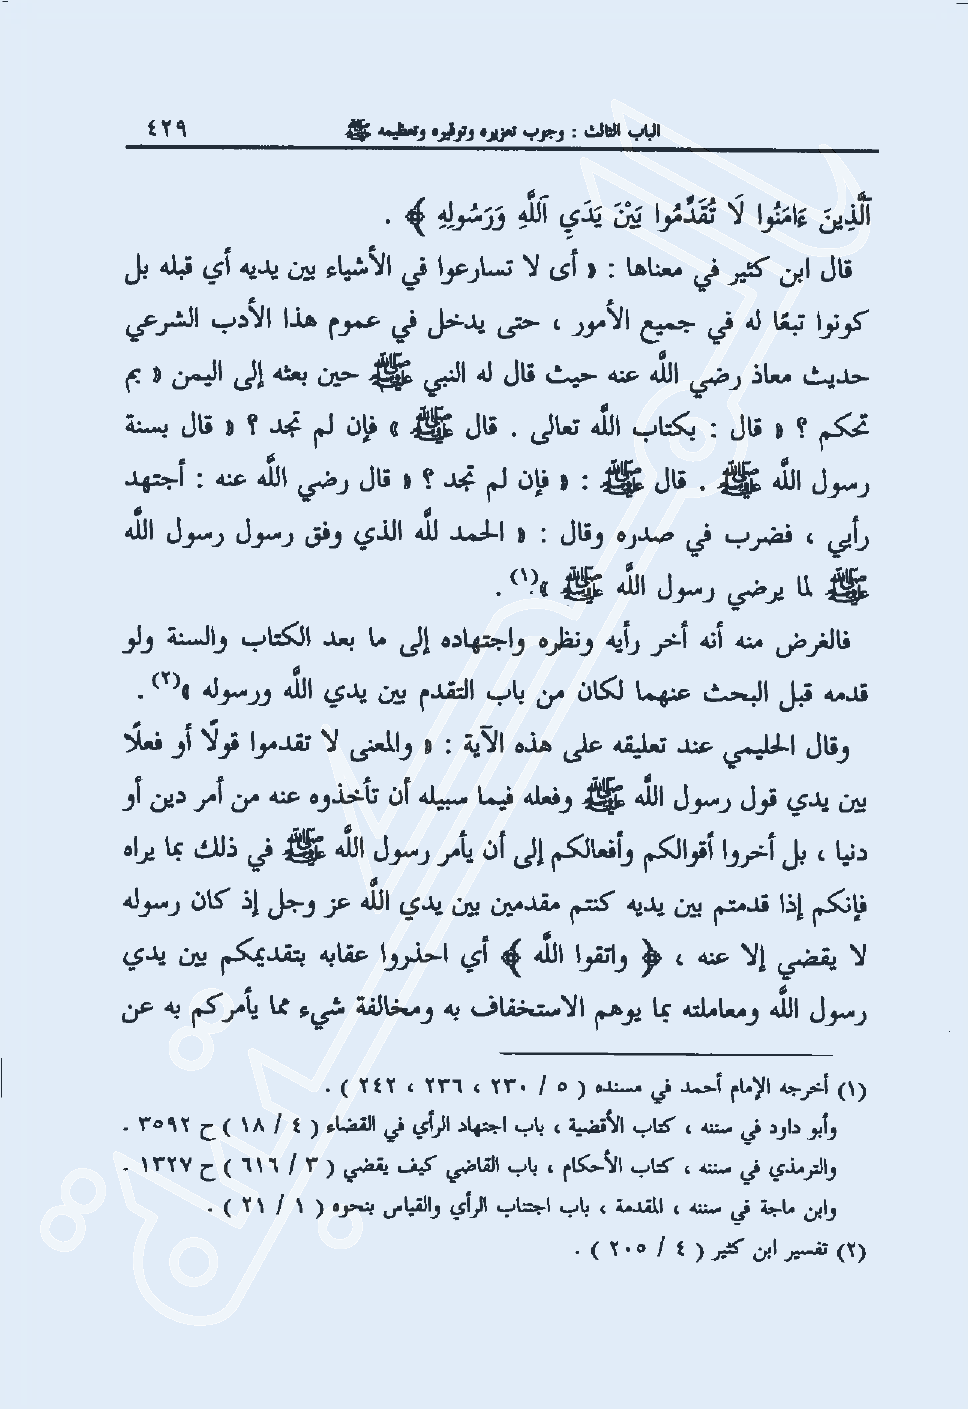 الباب الثالث : وجوب تعزيره وتوقيره وتعظيمه ﷺ ٤٢٩
ٱلَّذِينَ ءَامَنُوا لَا تُقَدِّمُوا بَيْنَ يَدَيِ ٱللَّهِ وَرَسُولِهِ ﴾ .
قال ابن كثير في معناها : « أى لا تسارعوا في الأشياء بين يديه أي قبله بل
كونوا تبعًا له في جميع الأمور ، حتى يدخل في عموم هذا الأدب الشرعي
حديث معاذ رضي اللَّه عنه حيث قال له النبي ﷺ حين بعثه إلى اليمن « بم
تحكم ؟ » قال : بكتاب اللَّه تعالى . قال ﷺ « فإن لم تجد ؟ » قال بسنة
رسول اللَّه ﷺ . قال ﷺ : « فإن لم تجد ؟ » قال رضي اللَّه عنه : أجتهد
رأيي ، فضرب في صدره وقال : « الحمد للَّه الذي وفق رسول رسول اللَّه
ﷺ لما يرضي رسول اللَّه ﷺ »(١) .
فالغرض منه أنه أخر رأيه ونظره واجتهاده إلى ما بعد الكتاب والسنة ولو
قدمه قبل البحث عنهما لكان من باب التقدم بين يدي اللَّه ورسوله »(٢) .
وقال الحليمي عند تعليقه على هذه الآية : « والمعنى لا تقدموا قولًا أو فعلًا
بين يدي قول رسول اللَّه ﷺ وفعله فيما سبيله أن تأخذوه عنه من أمر دين أو
دنيا ، بل أخروا أقوالكم وأفعالكم إلى أن يأمر رسول اللَّه ﷺ في ذلك بما يراه
فإنكم إذا قدمتم بين يديه كنتم مقدمين بين يدي اللَّه عز وجل إذ كان رسوله
لا يقضي إلا عنه ، ﴿ واتقوا اللَّه ﴾ أي احذروا عقابه بتقديمكم بين يدي
رسول اللَّه ومعاملته بما يوهم الاستخفاف به ومخالفة شيء مما يأمركم به عن
(١) أخرجه الإمام أحمد في مسنده ( ٥ / ٢٣٠ ، ٢٣٦ ، ٢٤٢ ) .
وأبو داود في سننه ، كتاب الأقضية ، باب اجتهاد الرأي في القضاء ( ٤ / ١٨ ) ح ٣٥٩٢ .
والترمذي في سننه ، كتاب الأحكام ، باب القاضي كيف يقضي ( ٣ / ٦١٦ ) ح ١٣٢٧ .
وابن ماجة في سننه ، المقدمة ، باب اجتناب الرأي والقياس بنحوه ( ١ / ٢١ ) .
(٢) تفسير ابن كثير ( ٤ / ٢٠٥ ) .